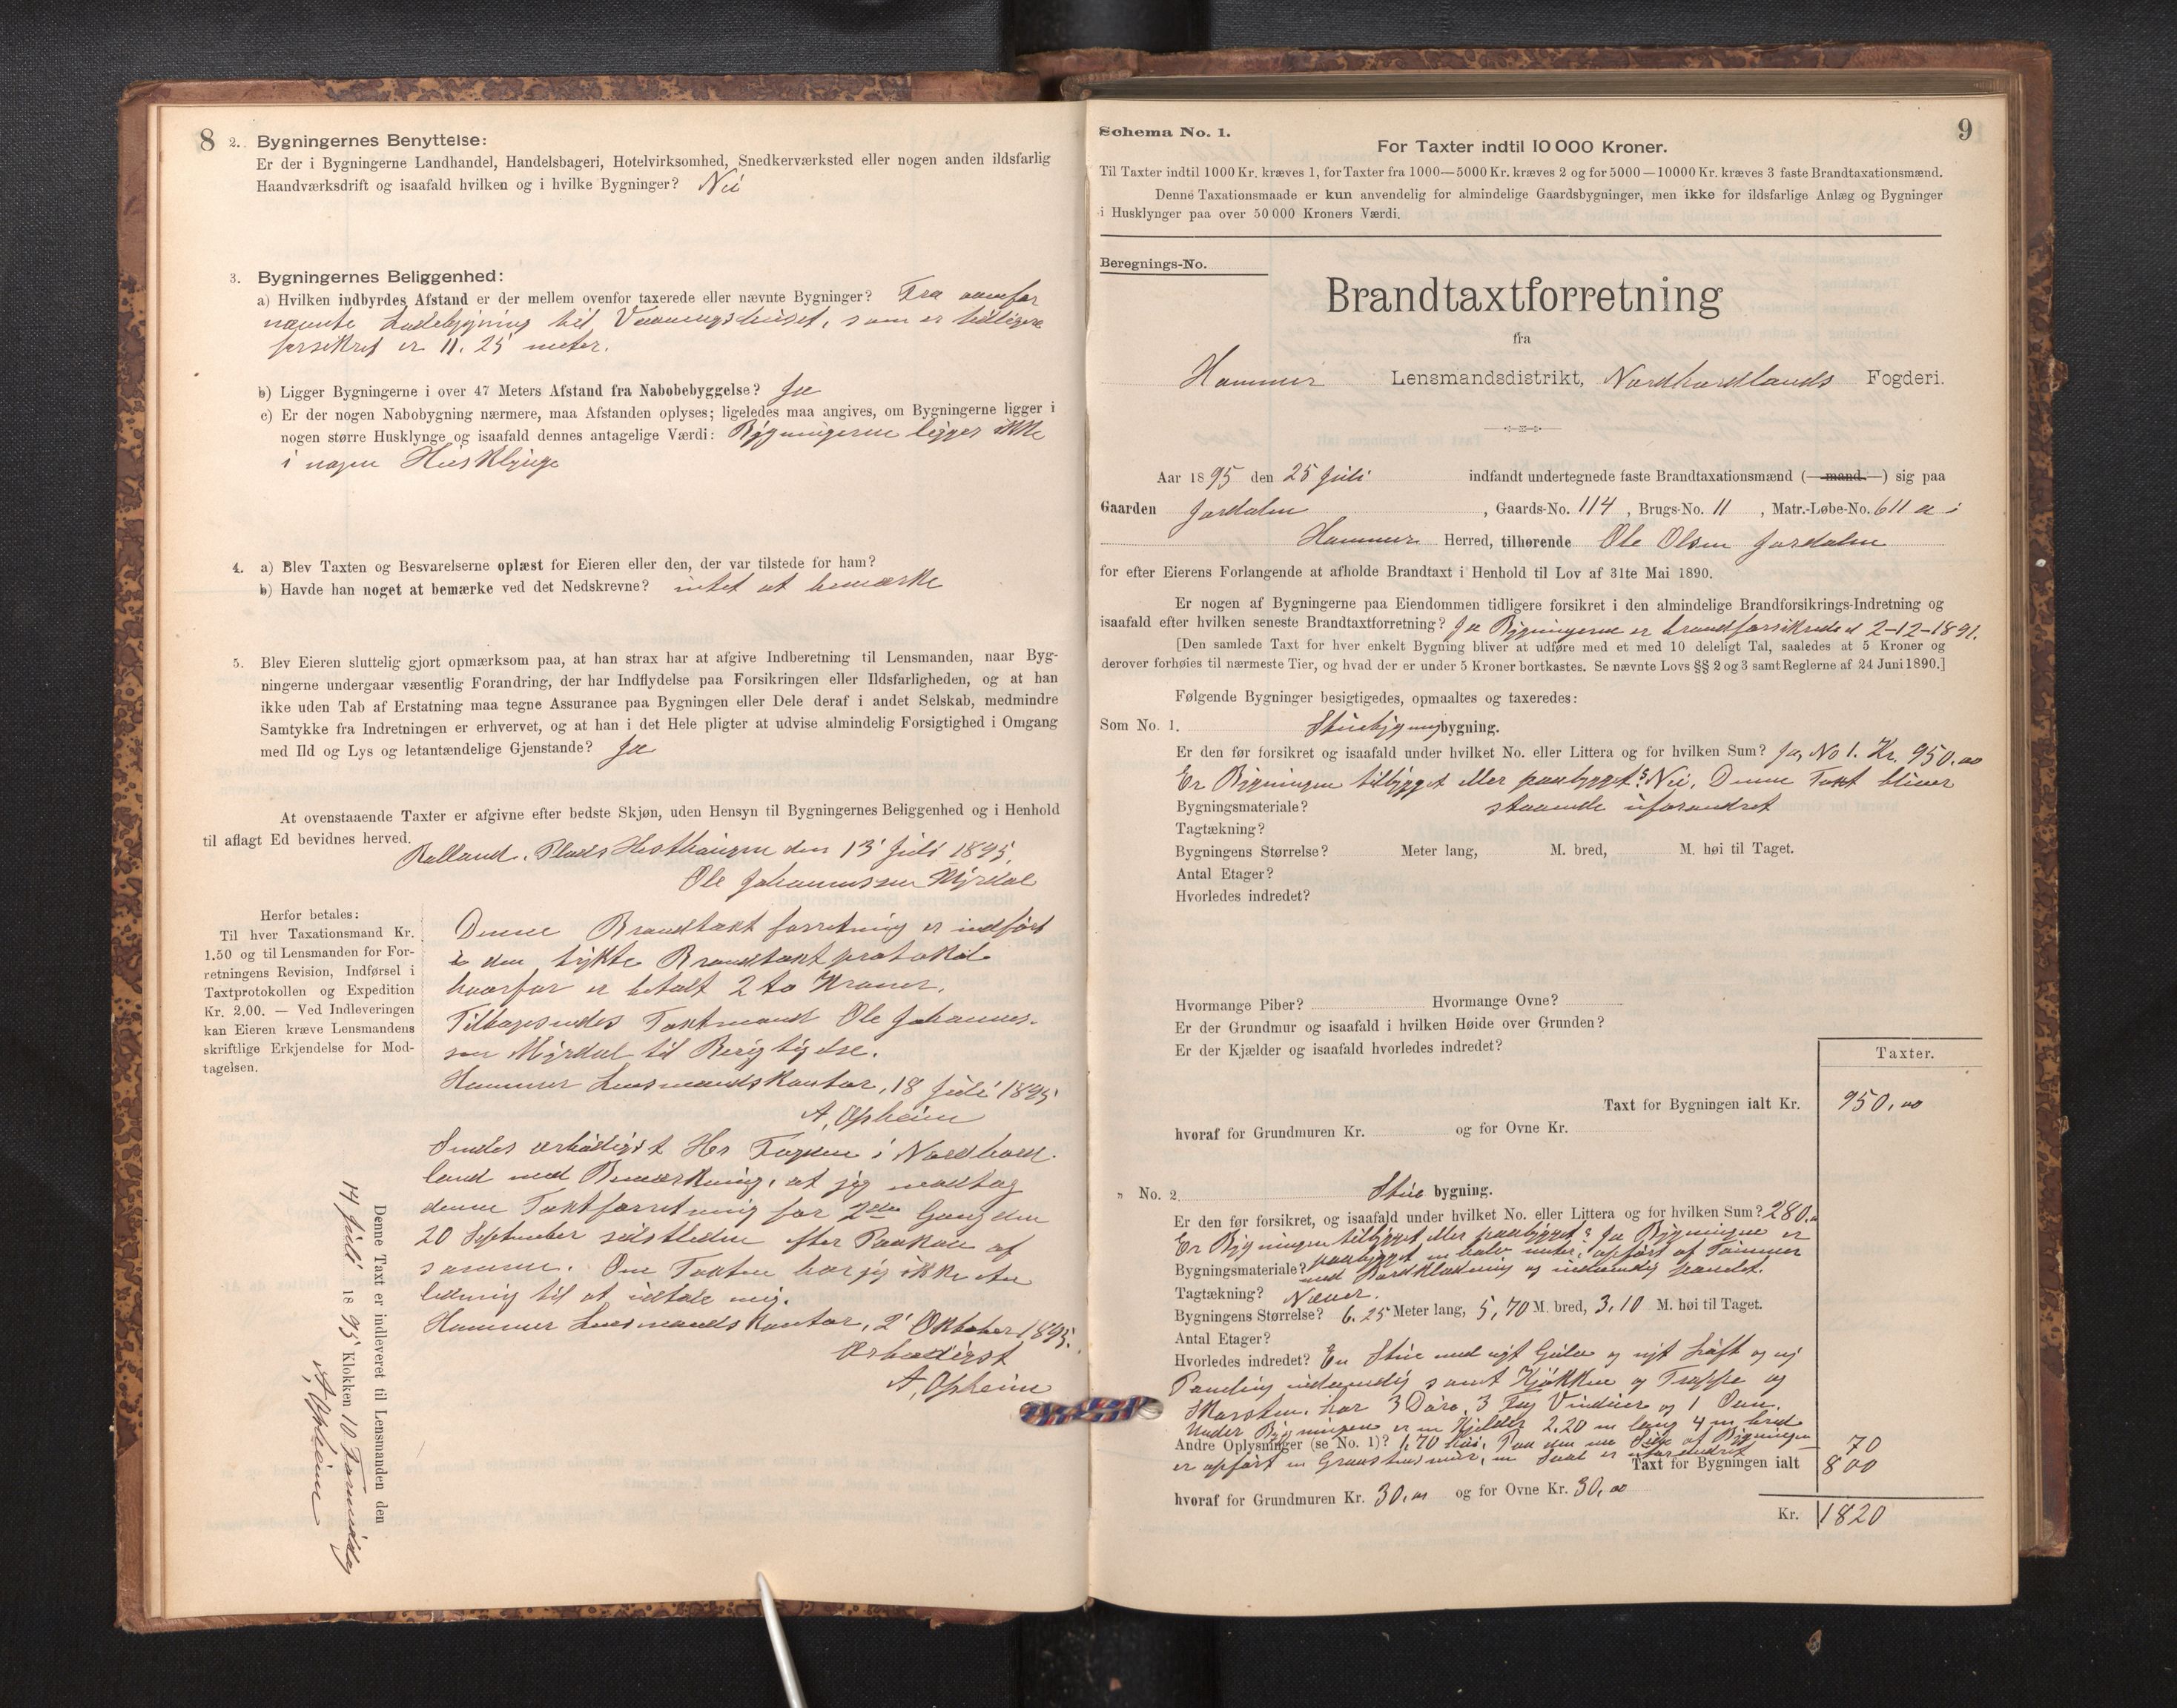 8
2. Bygningernes Benyttelse:
Er der i Bygningerne Landhandel, Handelsbageri, Hotelvirksomhed, Snedkerværksted eller nogen anden ildsfarlig
Haandværksdrift og isaafald hvilken og i hvilke Bygninger? Nei
3. Bygningernes Beliggenhed:
a) Hvilken indbyrdes Afstand er der mellem ovenfor taxerede eller nævnte Bygninger? Fra ovenfor
nævnte Ladebygning til Vaaningshuset, som er tidligere
forsikret er 11.25 meter.
b) Ligger Bygningerne i over 47 Meters Afstand fra Nabobebyggelse? Ja
c) Er der nogen Nabobygning nærmere, maa Afstanden oplyses; ligeledes maa angives, om Bygningerne ligger i
nogen større Husklynge og isaafald dennes antagelige Værdi: Bygningerne ligger ikke
i nogen Husklynge
4. a) Blev Taxten og Besvarelserne oplæst for Eieren eller den, der var tilstede for ham?
b) Havde han noget at bemærke ved det Nedskrevne? intet at bemærke
5. Blev Eieren sluttelig gjort opmærksom paa, at han strax har at afgive Indberetning til Lensmanden, naar Byg-
ningerne undergaar væsentlig Forandring, der har Indflydelse paa Forsikringen eller Ildsfarligheden, og at han
ikke uden Tab af Erstatning maa tegne Assurance paa Bygningen eller Dele deraf i andet Selskab, medmindre
Samtykke fra Indretningen er erhvervet, og at han i det Hele pligter at udvise almindelig Forsigtighed i Omgang
med Ild og Lys og letantændelige Gjenstande? Ja
At ovenstaaende Taxter er afgivne efter bedste Skjøn, uden Hensyn til Bygningernes Beliggenhed og i Henhold
til aflagt Ed bevidnes herved.
Plads Hesthaugen den 13 Juli 1895.
Ole Johannessen Myrdal
Herfor betales:
Til hver Taxationsmand Kr.
1.50 og til Lensmanden for For-
retningens Revision, Indførsel i
Taxtprotokollen og Expedition
Kr. 2,00. — Ved Indleveringen
kan Eieren kræve Lensmandens
skriftlige Erkjendelse for Mod-
tagelsen.
Denne Brandtaxtforretning er indført
i den trykte Brandtaxtprotokol
hvorfor er betalt 2 to Kroner.
Tilbagesendes Taxtmand Ole Johannes-
sen Myrdal til Berigtigelse.
Hammer Lensmandskontor, 18 Juli 1895
A. Opheim
Sendes ærbødigst Hr Fogden i Nordhord-
land med Bemærkning, at jeg modtog
denne Taxtforretning for 2den Gang den
20 September sidstleden efter Paakrav af
samme. Om Taxten har jeg ikke An
ledning til at udtale mig.
Hammer Lensmandskontor, 2 Oktober 1895.
Ærbødigst
A. Opheim
Denne Taxt er indleveret til Lensmanden den
14 Juli 1895 Klokken 10 Formiddag
A. Opheim
9
Schema No. 1.
For Taxter indtil 10 000 Kroner.
Til Taxter indtil 1000 Kr. kræves 1, for Taxter fra 1000—5000 Kr. kræves 2 og for 5000—10000 Kr. kræves 3 faste Brandtaxationsmænd.
Denne Taxationsmaade er kun anvendelig for almindelige Gaardsbygninger, men ikke for ildsfarlige Anlæg og Bygninger
i Husklynger paa over 50 000 Kroners Værdi.
Beregnings-No.
Brandtaxtforretning
fra
Hammer Lensmandsdistrikt, Nordhordlands Fogderi.
Aar 1895 den 25 Juli indfandt undertegnede faste Brandtaxationsmænd (mand) sig paa
Gaarden Jordalen, Gaards-No. 114, Brugs-No. 11, Matr.-Løbe-No. 611 a i
Hammer Herred, tilhørende Ole Olsen Jordalen
for efter Eierens Forlangende at afholde Brandtaxt i Henhold til Lov af 31te Mai 1890.
Er nogen af Bygningerne paa Eiendommen tidligere forsikret i den almindelige Brandforsikrings-Indretning og
isaafald efter hvilken seneste Brandtaxtforretning? Ja Bygningerne er brandforsikrede d 2-12-1891.
[Den samlede Taxt for hver enkelt Bygning bliver at udføre med et med 10 deleligt Tal, saaledes at 5 Kroner og
derover forhøies til nærmeste Tier, og hvad der er under 5 Kroner bortkastes. Se nævnte Lovs §§ 2 og 3 samt Reglerne af 24 Juni 1890.]
Følgende Bygninger besigtigedes, opmaaltes og taxeredes:
Som No. 1. Stuebygning bygning.
Er den før forsikret og isaafald under hvilket No. eller Littera og for hvilken Sum? Ja, No 1. Kr. 950.00
Er Bygningen tilbygget eller paabygget? Nei. Denne Taxt bliver
Bygningsmateriale? staaende uforandret
Tagtækning?
Bygningens Størrelse? Meter lang, M. bred, M. høi til Taget.
Antal Etager?
Hvorledes indredet?
Hvormange Piber? Hvormange Ovne?
Er der Grundmur og isaafald i hvilken Høide over Grunden?
Er der Kjælder og isaafald hvorledes indredet?
Taxter.
Taxt for Bygningen ialt Kr. 950.00
hvoraf for Grundmuren Kr. og for Ovne Kr.
" No. 2 Stue bygning.
Er den før forsikret, og isaafald under hvilket No. eller Littera og for hvilken Sum? 280.
Er Bygningen tilbygget eller paabygget? Ja Bygningen er
paabygget en halv meter, opført af Tømmer
Bygningsmateriale? med Bordklædning og indvendig panelet.
Tagtækning? Næver.
Bygningens Størrelse? 6.25 Meter lang, 5,70 M. bred, 3.10 M. høi til Taget.
Antal Etager?
Hvorledes indredet? En Stue med nyt Gulv og nyt Loft og ny
Paneling indvendig samt Kjøkken og Trappe og
Skorsten. har 3 Døre, 3 Fag Vinduer og 1 Ovn.
Under Bygningen er en Kjelder 2.20 m lang 4 m bred
Andre Oplysninger (se No. 1)? 1.70 høi. Paa den ene Side af Bygningen 70
er opført en er uforandret
Taxt for Bygningen ialt 800
hvoraf for Grundmuren Kr. 30.00 og for Ovne Kr. 30.00
Kr. 1820